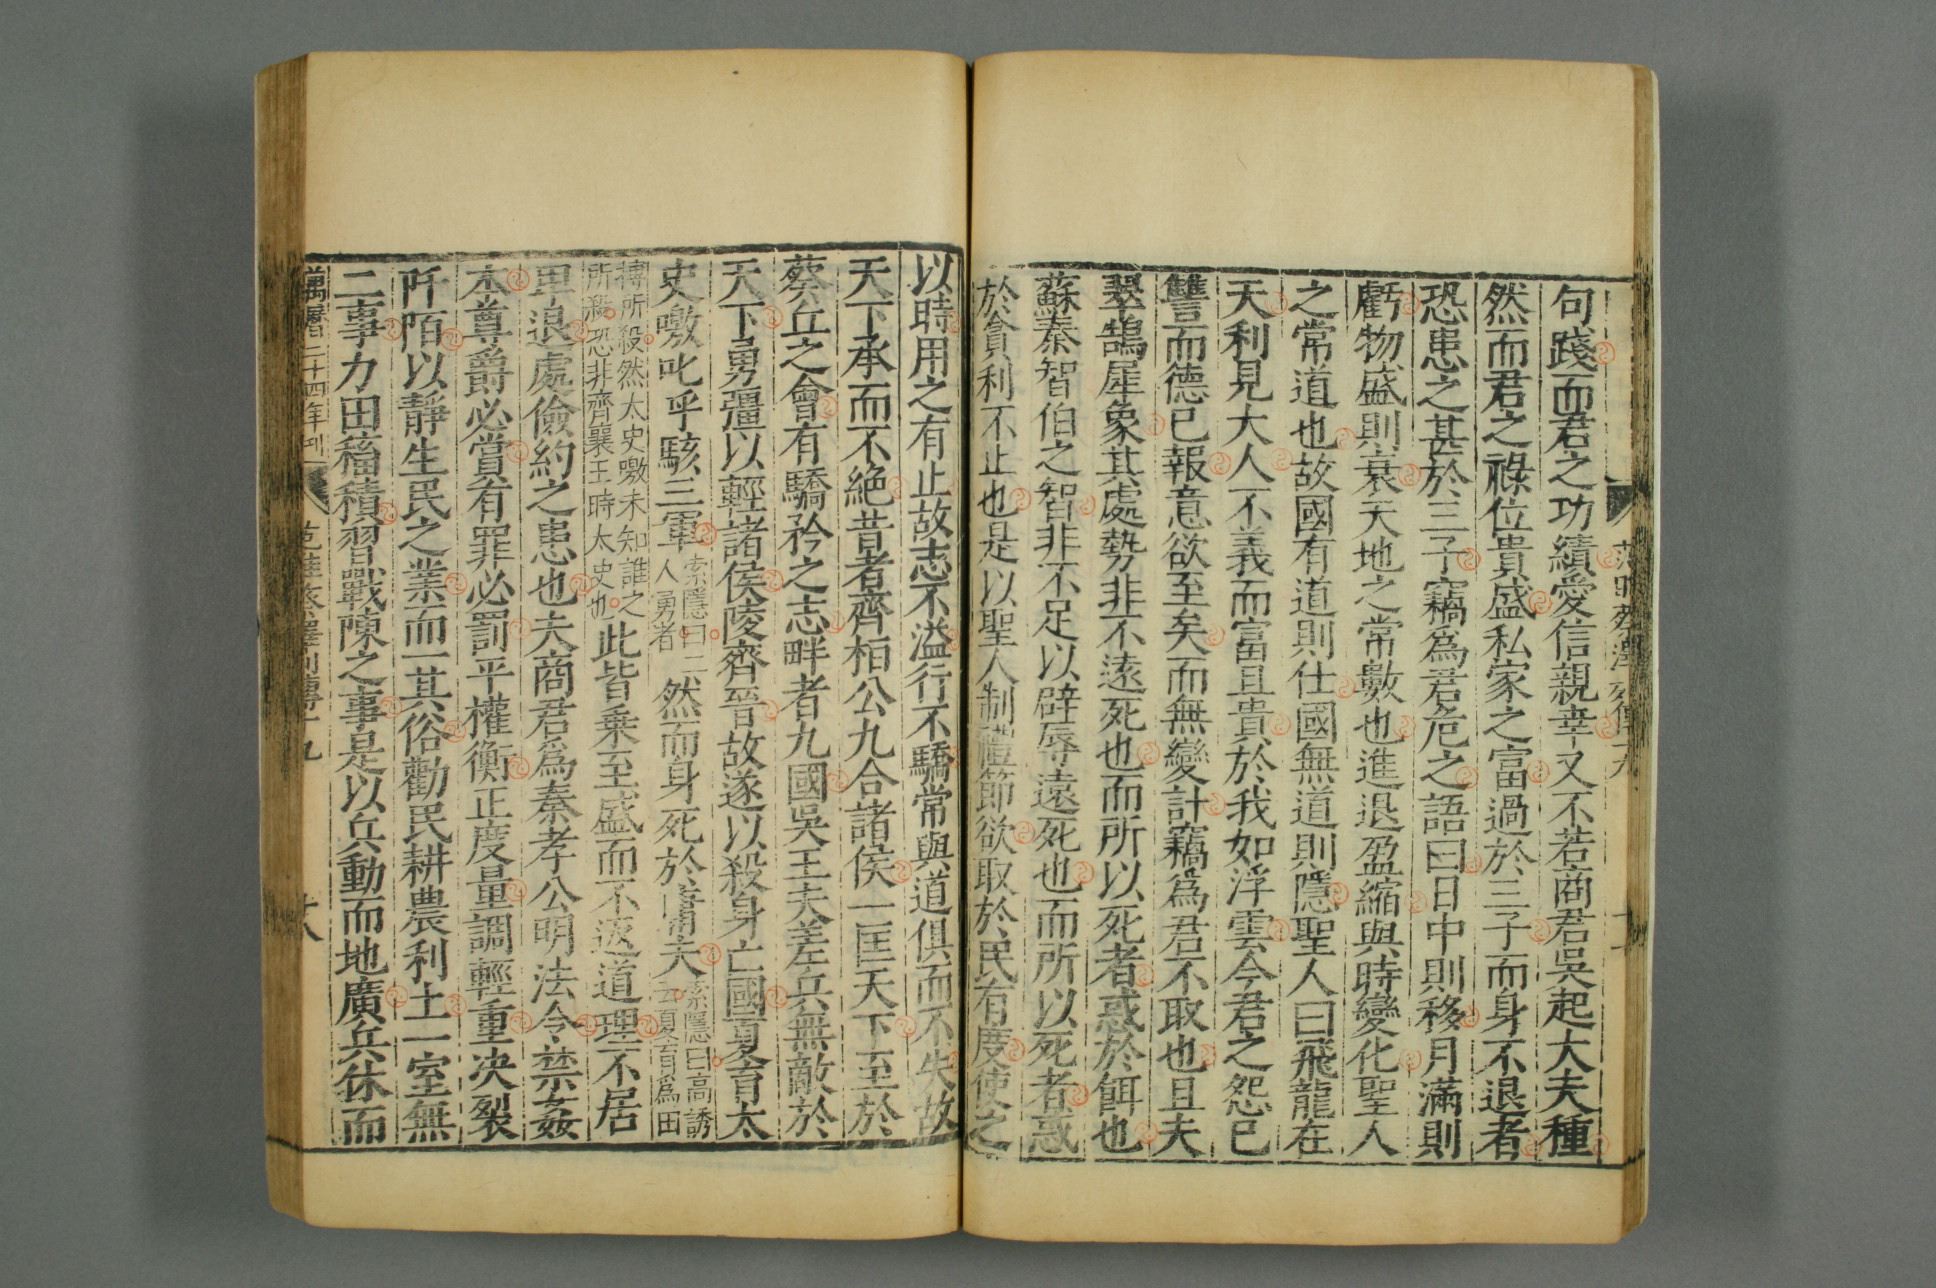 句踐而君之功績愛信親幸又不若商君吳起大夫種
然而君之祿位貴盛私家之富過於三子而身不退者
恐患之甚於三子竊爲君危之語曰日中則移月滿則
虧物盛則衰天地之常數也進退盈縮與時變化聖人
之常道也故國有道則仕國無道則隱聖人曰飛龍在
天利見大人不義而富且貴於我如浮雲今君之怨已
讐而德已報意欲至矣而無變計竊爲君不取也且夫
翠鵠犀象其處勢非不遠死也而所以死者惑於餌也
蘇秦智伯之智非不足以辟辱遠死也而所以死者惑
於貪利不止也是以聖人制禮節欲取於民有度使之
以時用之有止故志不溢行不驕常與道俱而不失故
天下承而不絕昔者齊桓公九合諸侯一匡天下至於
蔡丘之會有驕矜之志畔者九國吳王夫差兵無敵於
天下勇彊以輕諸侯陵齊晉故遂以殺身亡國夏育太
史噭叱乎駭三軍索隱曰二人勇者然而身死於庸夫索隱曰高誘云夏育爲田
搏所殺然太史噭未知誰之所殺恐非齊襄王時太史也此皆乗至盛而不返道理不居
卑退處儉約之患也夫商君爲秦孝公明法令禁姦
本尊爵必賞有罪必罰平權衡正度量調輕重决裂
阡陌以靜生民之業而一其俗勸民耕農利土一室無
二事力田稸積習戰陳之事是以兵動而地廣兵休而
萬曆二十四年刊 范雎蔡澤列傳十九 十八